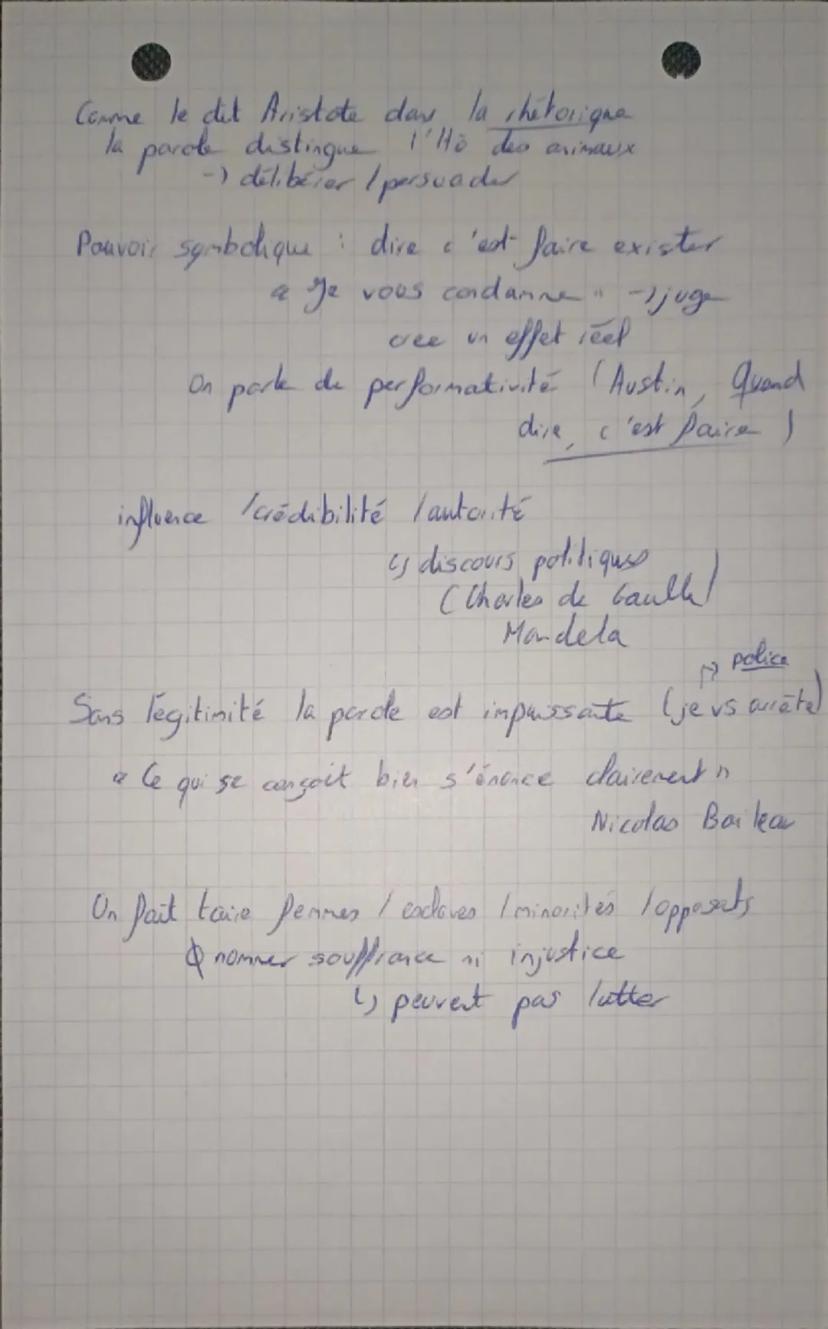 Comme le dit Aristote dans la rhétorique
la parole distingue l'Hô des animaux
-> délibérer / persuader
Pouvoir symbolique : dire c'est faire exister
« Je vous condamne » -> juge
crée un effet réel
On parle de performativité (Austin, Quand
dire, c'est faire )
influence / crédibilité / autorité
↳ discours politiques
(Charles de Gaulle)
Mandela
↱ police
Sans légitimité la parole est impuissante (je vs arrête)
« Ce qui se conçoit bien s'énonce clairement »
Nicolas Boileau
On fait taire femmes / esclaves / minorités / opposants
Φ nommer souffrance ni injustice
↳ peuvent pas lutter